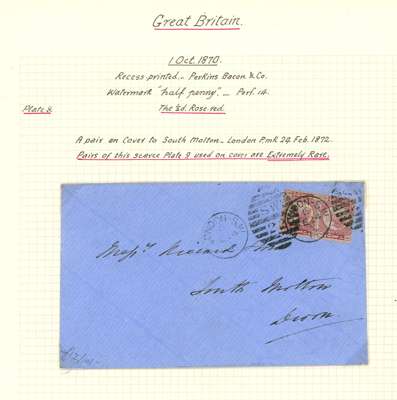 Great Britain.
1 Oct. 1870.
Recess-printed - Perkins Bacon & Co.
Watermark "half penny" - Perf. 14.
Plate 9. The ½d. Rose-red.
A pair on Cover to South Molton - London P.mk 24 Feb. 1872.
Pairs of this scarce Plate 9 used on cover are Extremely Rare.
Messrs
South Molton
Devon